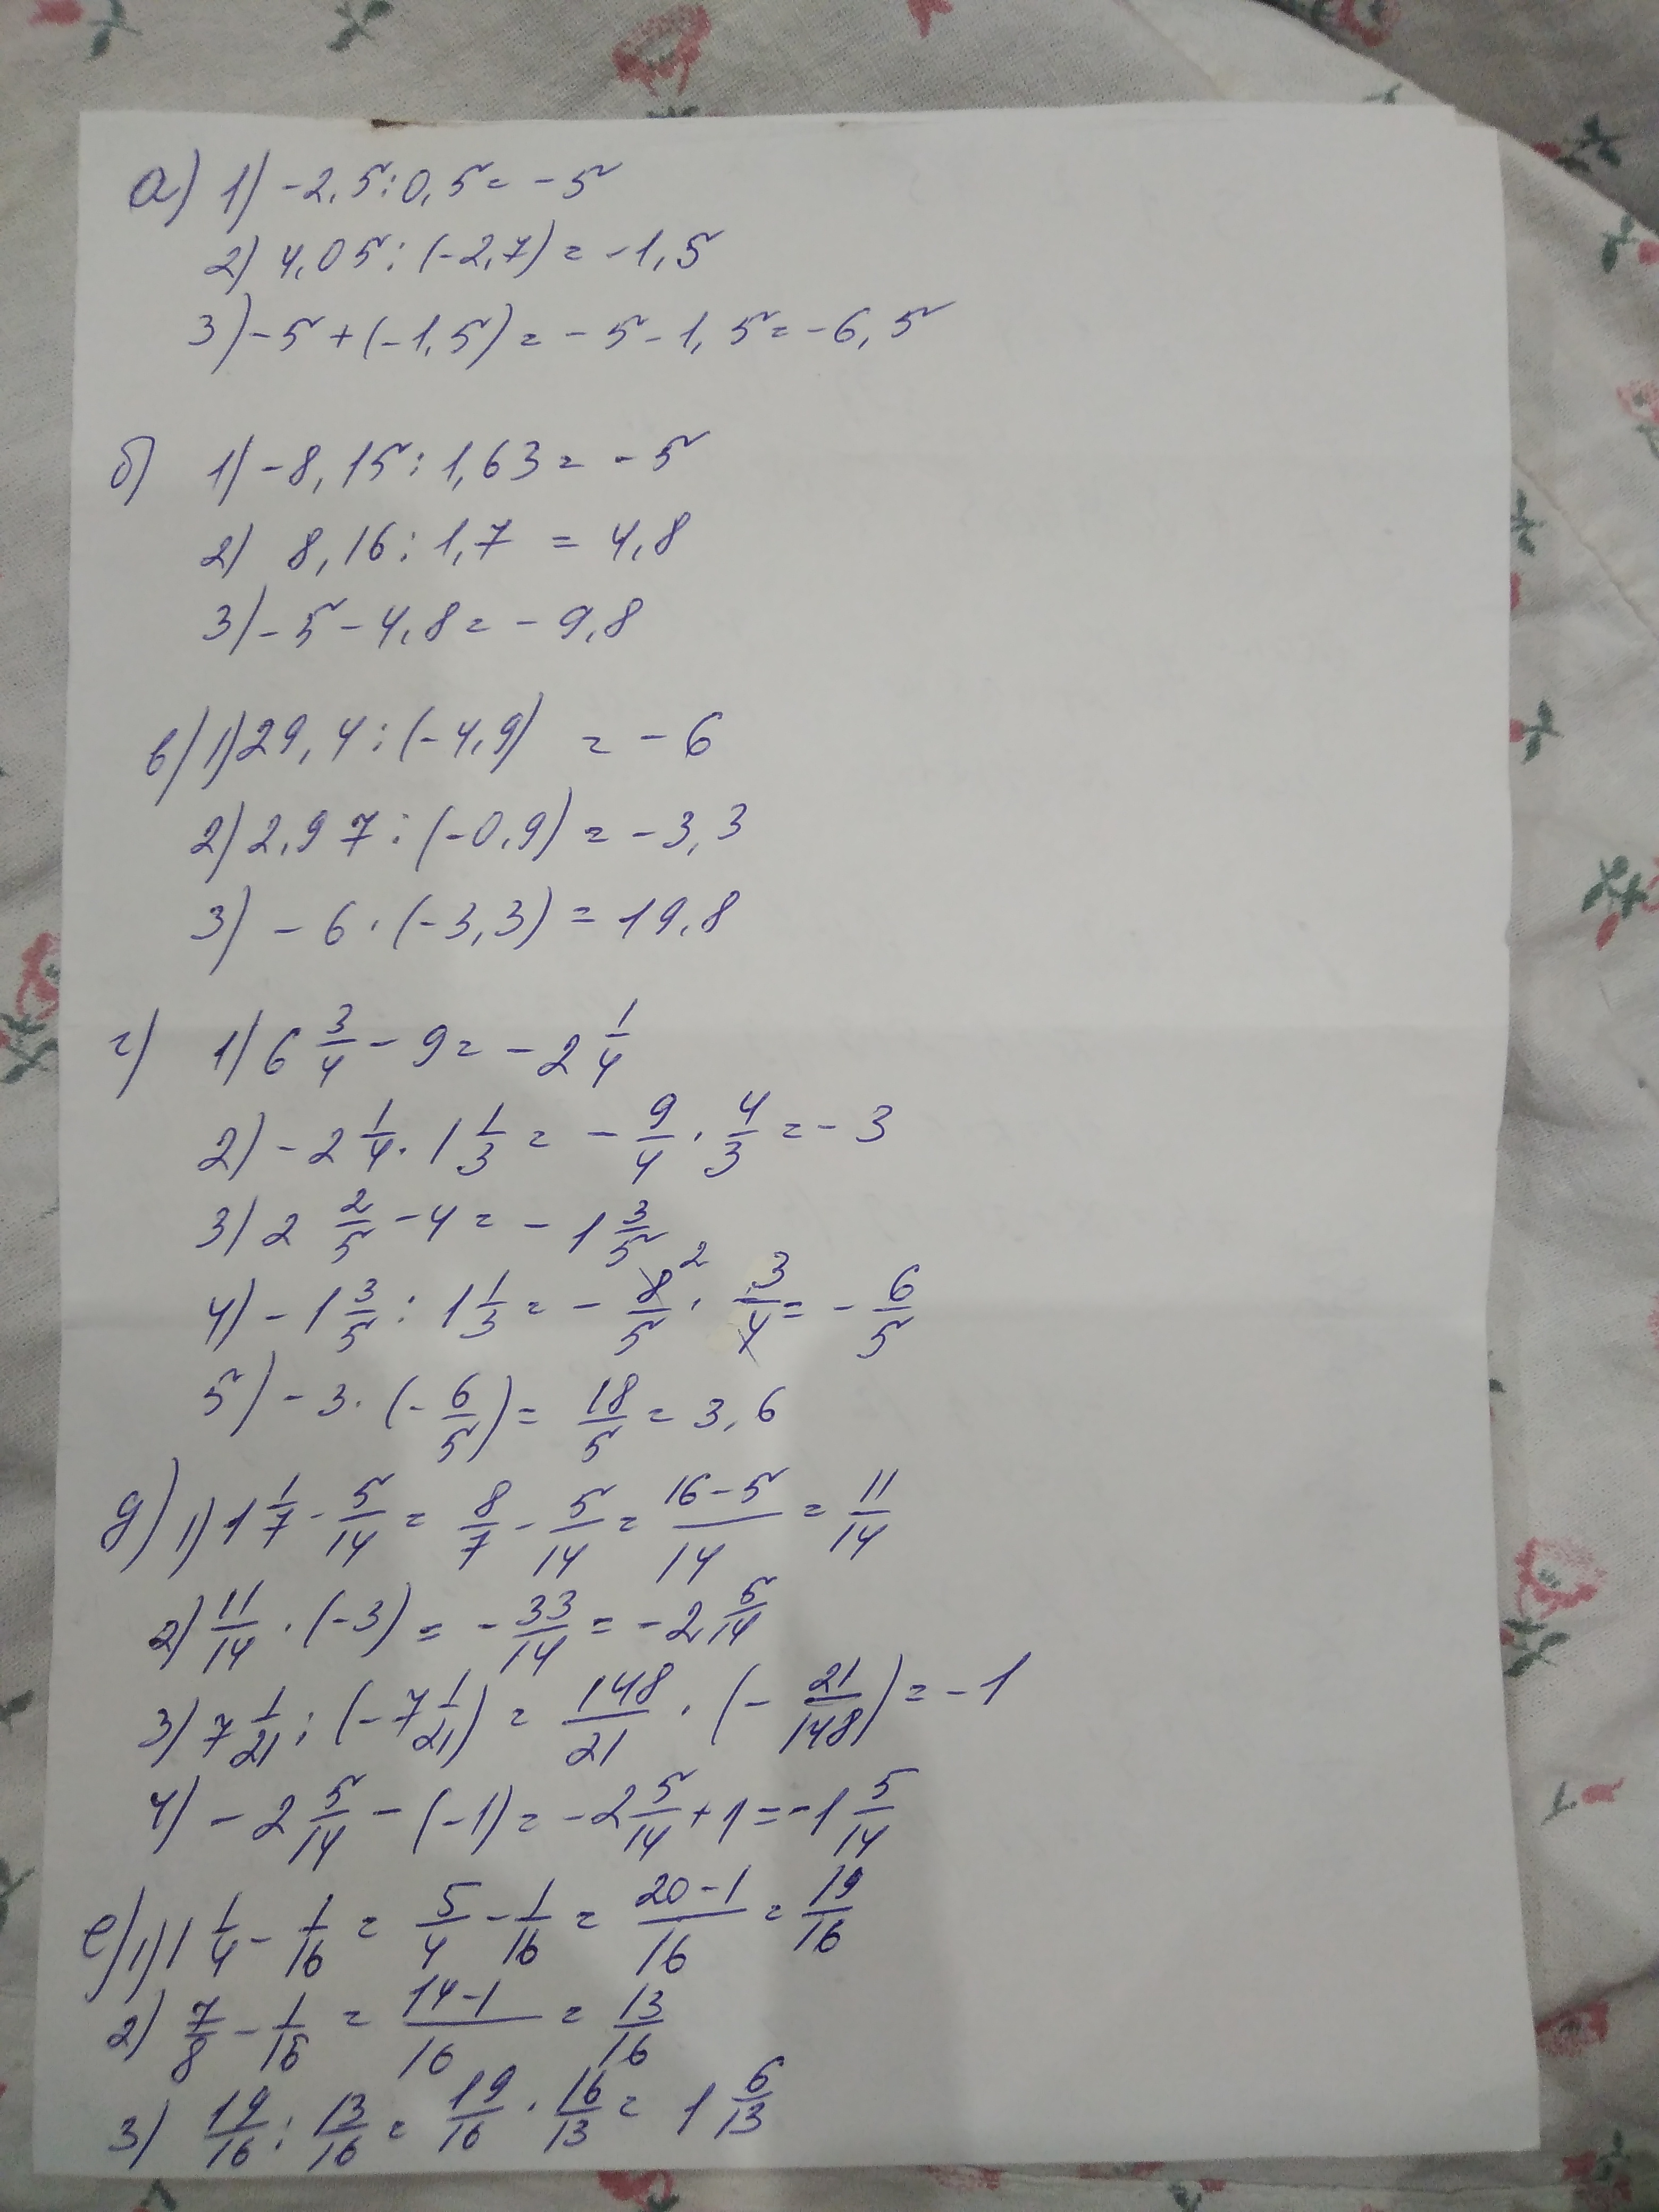 а) 1) -2,5:0,5= -5
2) 4,05:(-2,7)= -1,5
3) -5+(-1,5)= -5-1,5= -6,5
б) 1) -8,15:1,63= -5
2) 8,16:1,7 = 4,8
3) -5-4,8= -9,8
в) 1) 29,4:(-4,9) = -6
2) 2,97:(-0,9)= -3,3
3) -6·(-3,3)=19,8
г) 1) 6 3/4 - 9= -2 1/4
2) -2 1/4 · 1 1/3 = -9/4 · 4/3 = -3
3) 2 2/5 - 4= -1 3/5
4) -1 3/5 : 1 1/3 = -8/5 2 · 3/4 = -6/5
5) -3·(-6/5)= 18/5 = 3,6
д) 1) 1 1/7 - 5/14 = 8/7 - 5/14 = 16-5/14 = 11/14
2) 11/14 · (-3) = -33/14 = -2 5/14
3) 7 1/21 : (-7 1/21) = 148/21 · (-21/148) = -1
4) -2 5/14 - (-1)= -2 5/14 + 1= -1 5/14
е) 1) 1 1/4 - 1/16 = 5/4 - 1/16 = 20-1/16 = 19/16
2) 7/8 - 1/16 = 14-1/16 = 13/16
3) 19/16 : 13/16 = 19/16 · 16/13 = 1 6/13